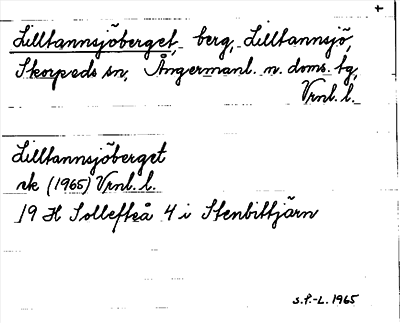 +
Lilltannsjöberget, berg, Lilltannsjö,
Skorpeds sn, Ångermanl. n. doms. tg,
Vrnl. l.
Lilltannsjöberget
rk (1965) Vrnl. l.
19 H Sollefteå 4 i Stenbittjärn
S.P.-L. 1965